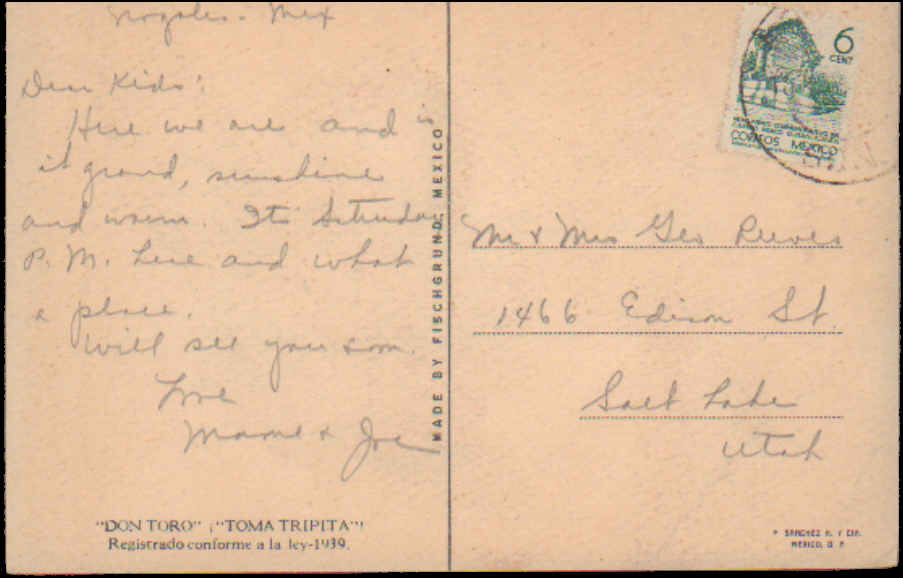 Nogales - Mex
Dear Kids:
Here we are and is
it grand, sunshine
and warm. Its Saturday
P.M. here and what
a place.
Will see you soon.
Love
Mame & Joe
MADE BY FISCHGRUND, MEXICO
"DON TORO" ¡"TOMA TRIPITA"!
Registrado conforme a la ley-1939.
6
CENT
CORREOS MEXICO
Mr & Mrs Geo Reeves
1466 Edison St.
Salt Lake
Utah
SANCHEZ H. Y CIA.
MEXICO, D. F.